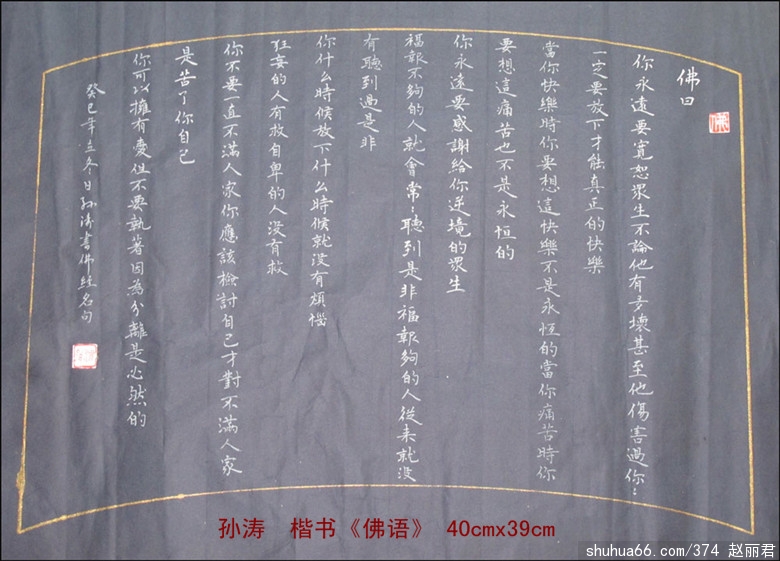 佛曰
你永遠要寬恕眾生不論他有多壞甚至他傷害過你:
一定要放下才能真正的快樂
當你快樂時你要想這快樂不是永恒的當你痛苦時你
要想這痛苦也不是永恒的
你永遠要感謝給你逆境的眾生
福報不夠的人就會常:聽到是非福報夠的人從来就没
有聽到過是非
你什么時候放下什么時候就没有煩惱
狂妄的人有救自卑的人没有救
你不要一直不滿人家你應該檢討自己才對不滿人家
是苦了你自己
你可以擁有愛但不要執著因為分離是必然的
癸巳年立冬日孙涛書佛經名句
佛
孙涛 楷书《佛语》 40cmx39cm
shuhua66.com/374 赵丽君